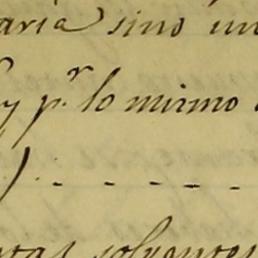 aria sino un
y p.r lo mismo
) . - - - - -
tas solventes